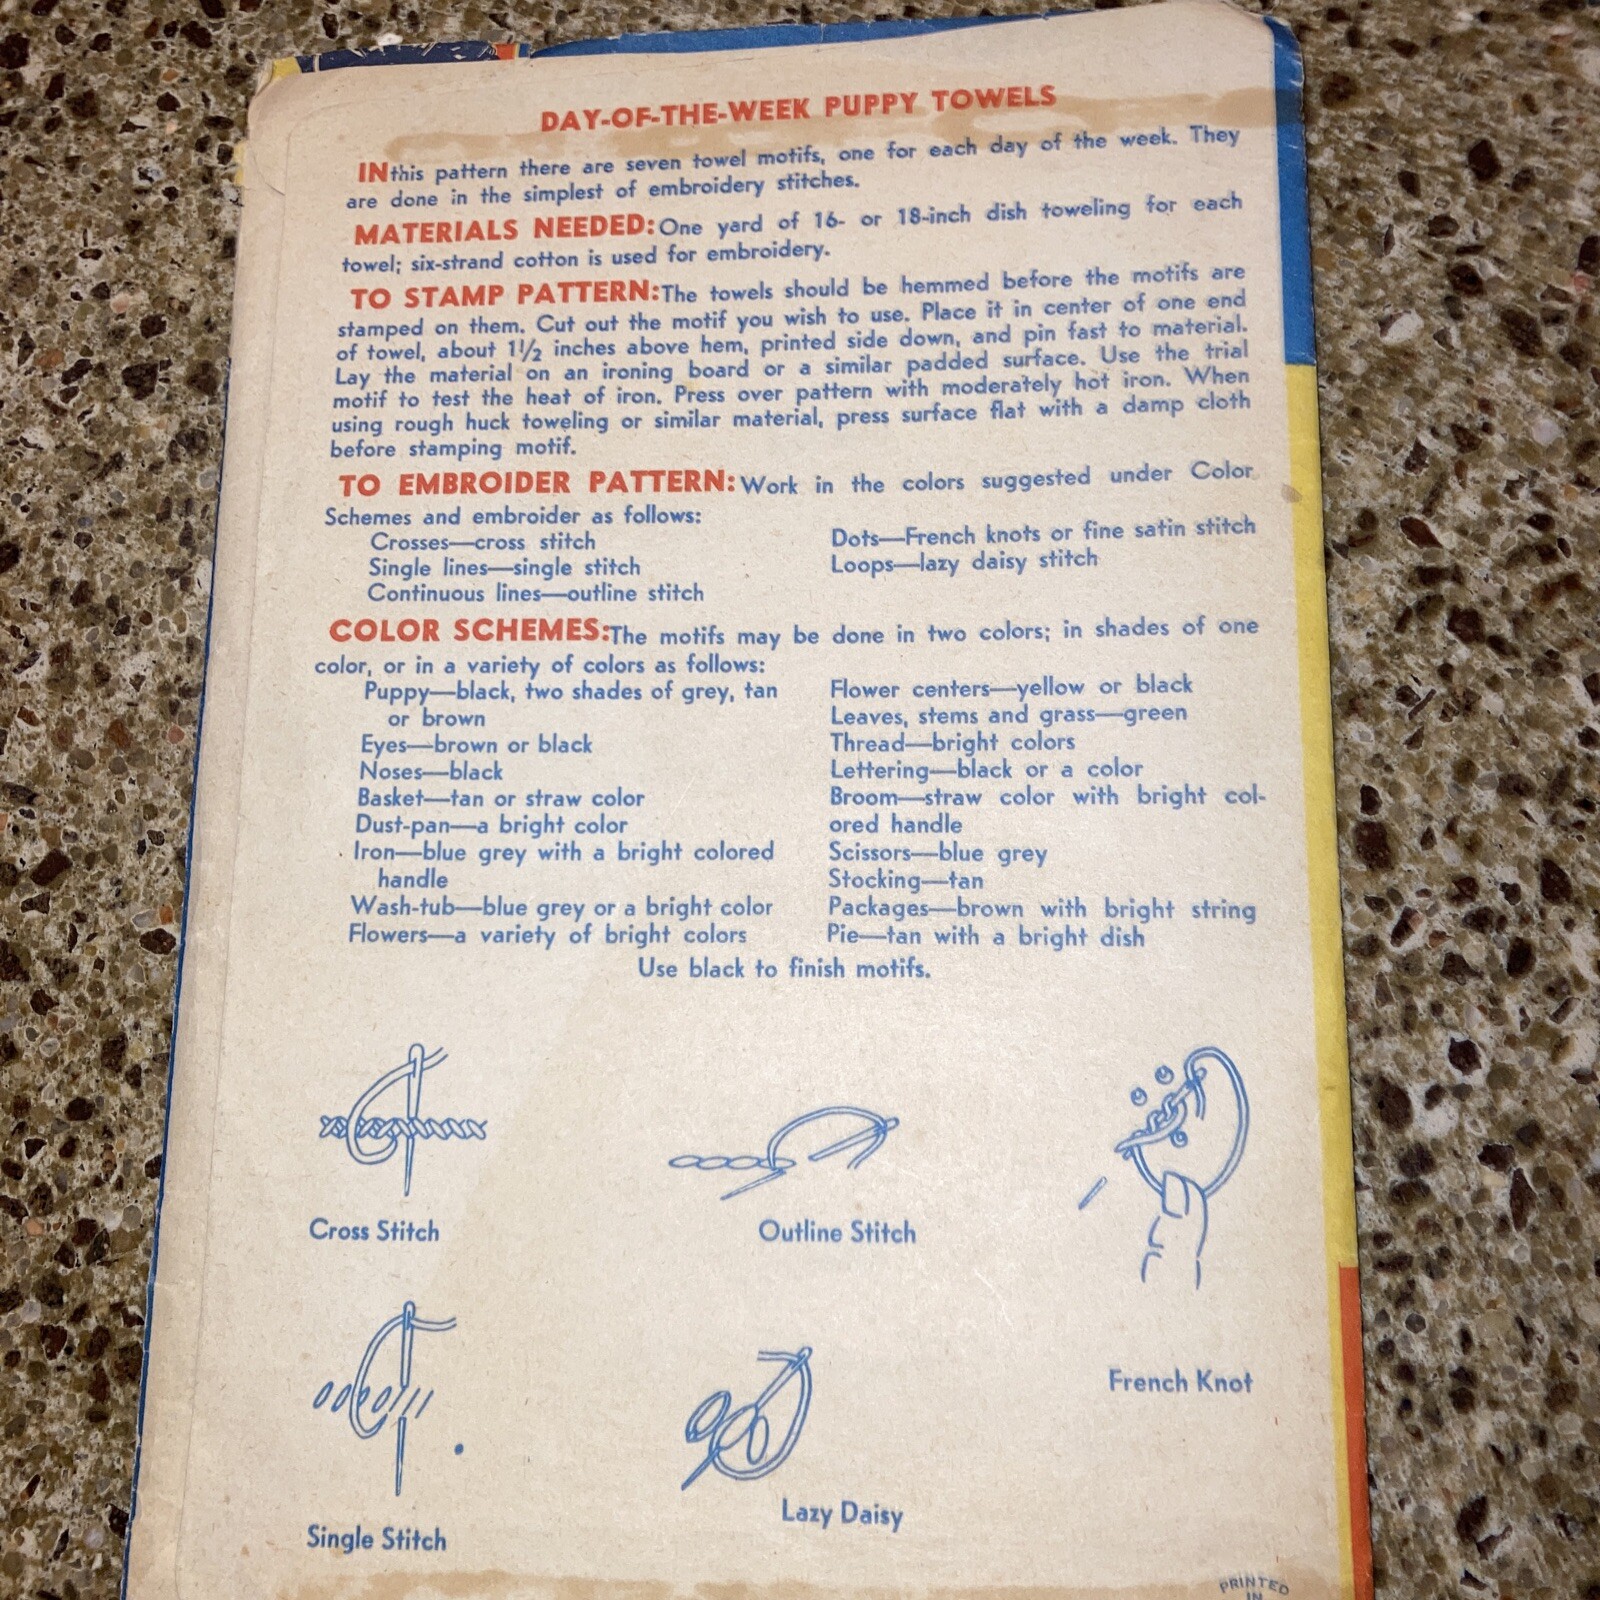 DAY-OF-THE-WEEK PUPPY TOWELS
IN this pattern there are seven towel motifs, one for each day of the week. They
are done in the simplest of embroidery stitches.
MATERIALS NEEDED: One yard of 16- or 18-inch dish toweling for each
towel; six-strand cotton is used for embroidery.
TO STAMP PATTERN: The towels should be hemmed before the motifs are
stamped on them. Cut out the motif you wish to use. Place it in center of one end
of towel, about 1 1/2 inches above hem, printed side down, and pin fast to material.
Lay the material on an ironing board or a similar padded surface. Use the trial
motif to test the heat of iron. Press over pattern with moderately hot iron. When
using rough huck toweling or similar material, press surface flat with a damp cloth
before stamping motif.
TO EMBROIDER PATTERN: Work in the colors suggested under Color
Schemes and embroider as follows:
Crosses—cross stitch
Single lines—single stitch
Continuous lines—outline stitch
Dots—French knots or fine satin stitch
Loops—lazy daisy stitch
COLOR SCHEMES: The motifs may be done in two colors; in shades of one
color, or in a variety of colors as follows:
Puppy—black, two shades of grey, tan
or brown
Eyes—brown or black
Noses—black
Basket—tan or straw color
Dust-pan—a bright color
Iron—blue grey with a bright colored
handle
Wash-tub—blue grey or a bright color
Flowers—a variety of bright colors
Flower centers—yellow or black
Leaves, stems and grass—green
Thread—bright colors
Lettering—black or a color
Broom—straw color with bright col-
ored handle
Scissors—blue grey
Stocking—tan
Packages—brown with bright string
Pie—tan with a bright dish
Use black to finish motifs.
Cross Stitch
Outline Stitch
French Knot
Single Stitch
Lazy Daisy
PRINTED
IN